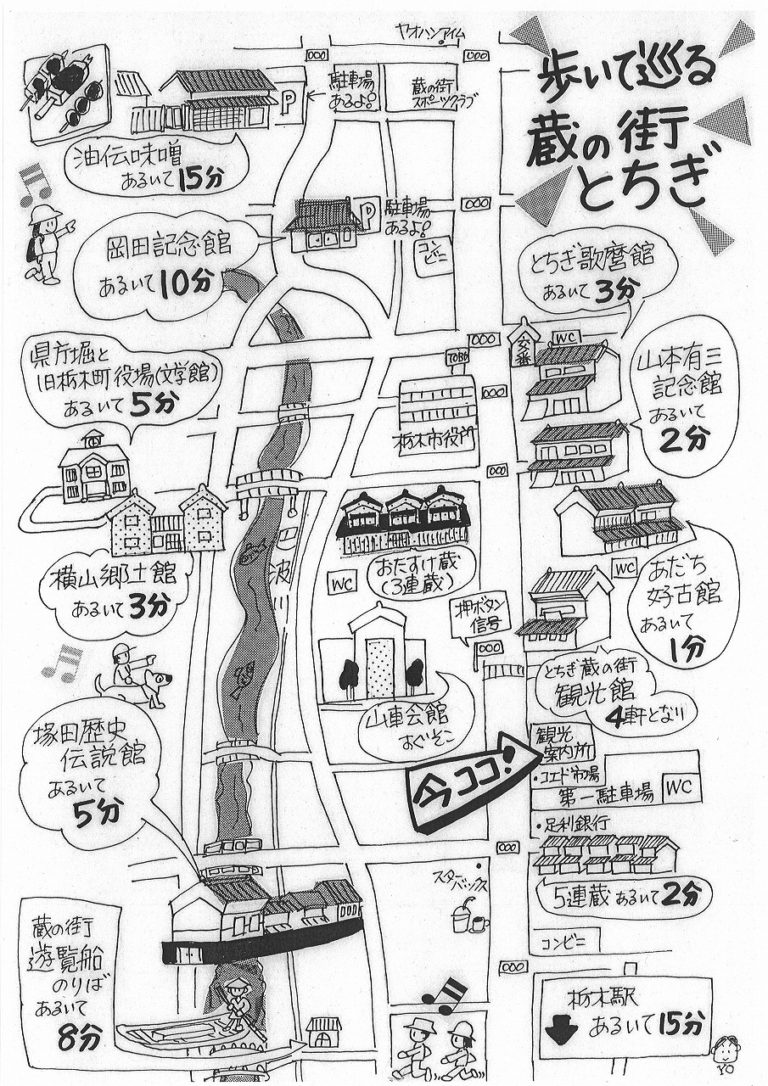 歩いて巡る
蔵の街
とちぎ
ヤオハンアイム
駐車場
あるよ!
蔵の街
スポーツクラブ
P
油伝味噌
あるいて15分
岡田記念館
あるいて10分
P
駐車場
あるよ!
コンビニ
とちぎ歌麿館
あるいて3分
県庁堀と
旧栃木町役場(文学館)
あるいて5分
交番
WC
TOBU
山本有三
記念館
あるいて
2分
栃木市役所
横山郷土館
あるいて3分
おたすけ蔵
(3連蔵)
WC
WC
あだち
好古館
あるいて
1分
押ボタン
信号
とちぎ蔵の街
観光館
4軒となり
山車会館
すぐそこ
塚田歴史
伝説館
あるいて
5分
今ココ!
観光
案内所
・コエド市場
第一駐車場
WC
・足利銀行
5連蔵 あるいて2分
スターバックス
コンビニ
蔵の街
遊覧船
のりば
あるいて
8分
栃木駅
あるいて15分
YO